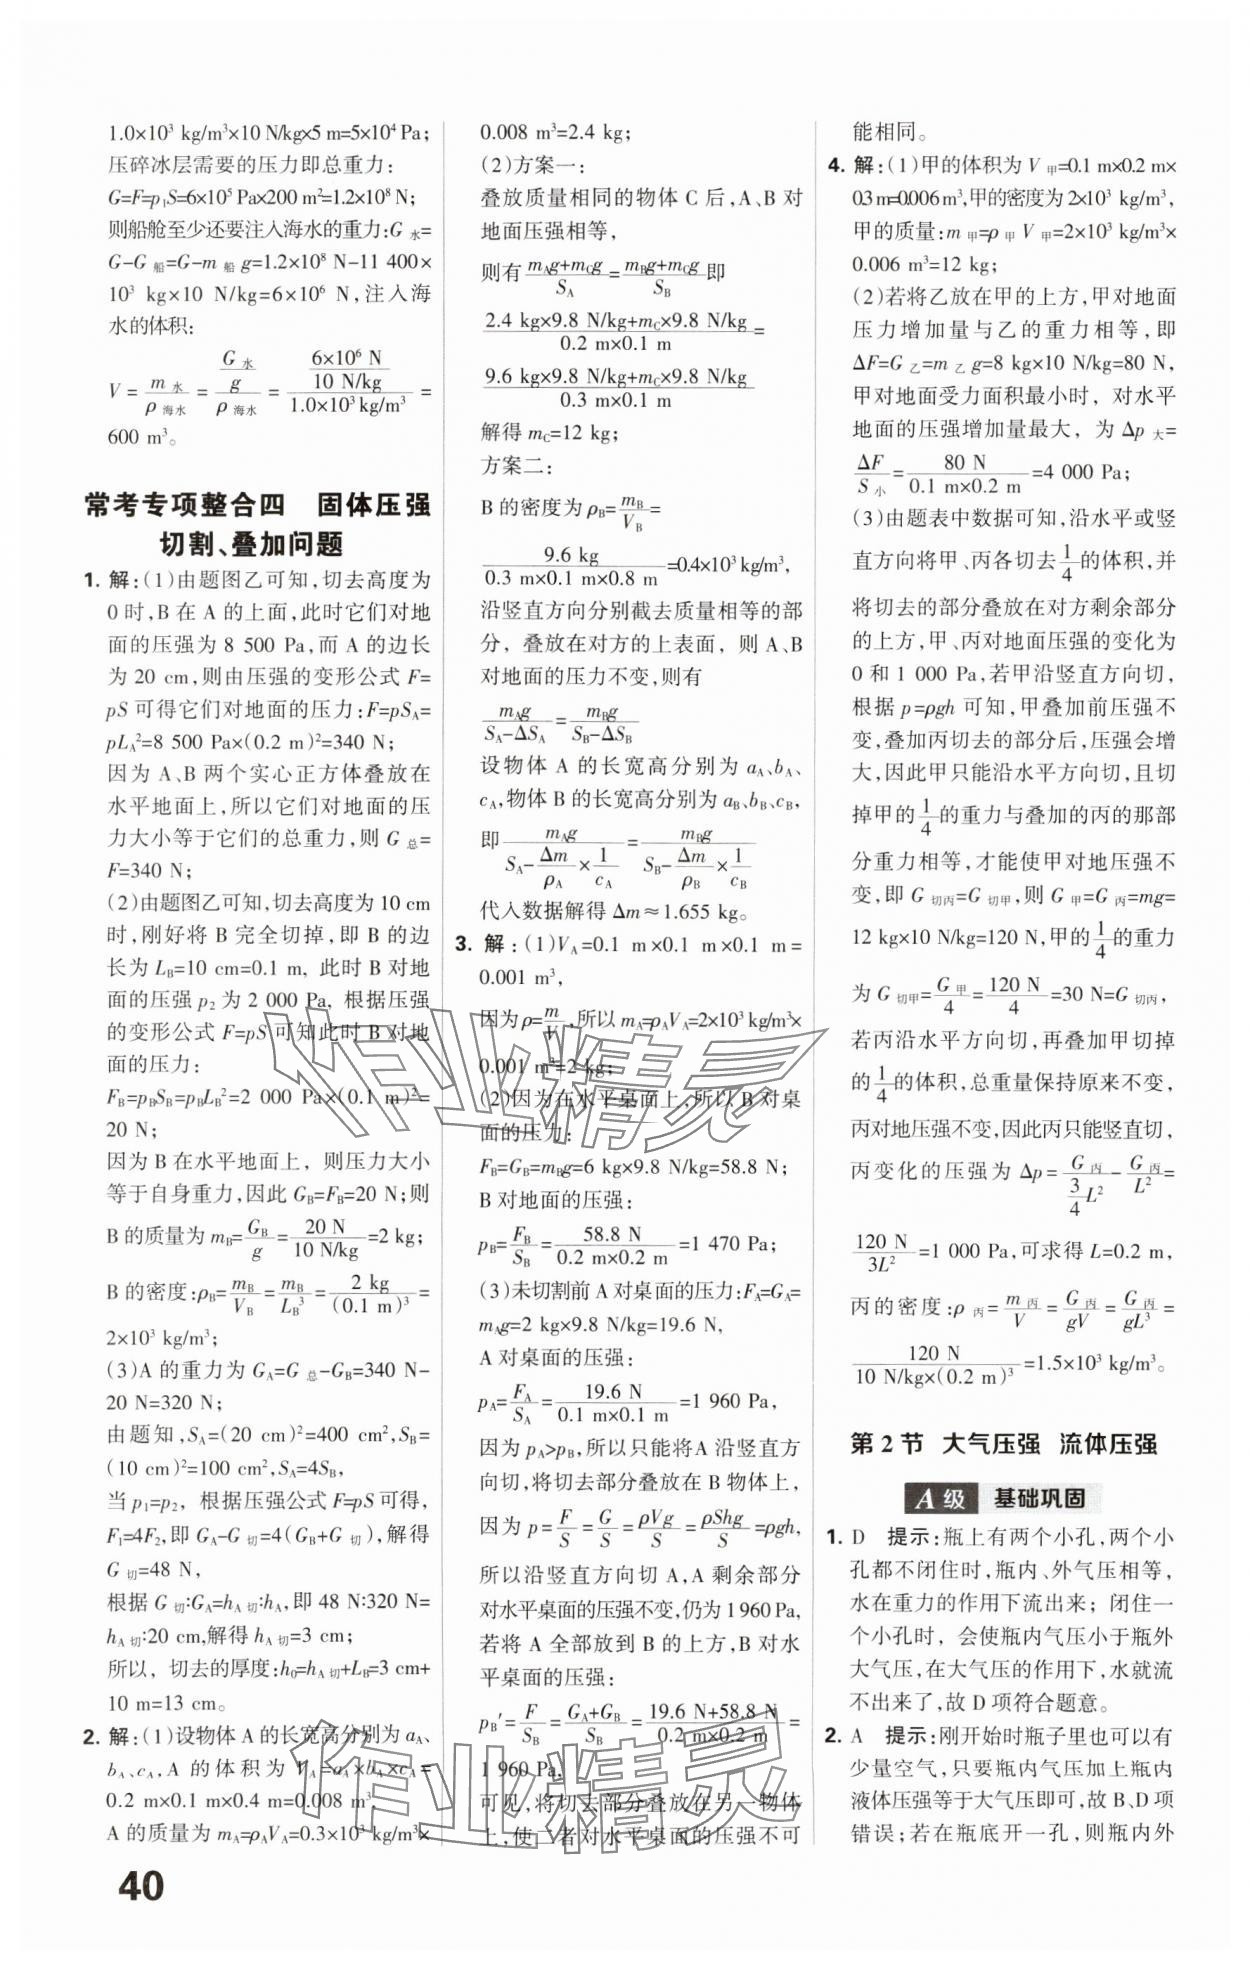 1.0×10³ kg/m³×10 N/kg×5 m=5×10⁴ Pa;
压碎冰层需要的压力即总重力:
G=F=p₁S=6×10⁵ Pa×200 m²=1.2×10⁸ N;
则船舱至少还要注入海水的重力:G水=
G-G船=G-m船g=1.2×10⁸ N-11 400×
10³ kg×10 N/kg=6×10⁶ N,注入海
水的体积:
V=m水/ρ海水=(G水/g)/ρ海水=(6×10⁶ N/10 N/kg)/(1.0×10³ kg/m³)=
600 m³。
常考专项整合四 固体压强
切割、叠加问题
1. 解:(1)由题图乙可知,切去高度为
0时,B在A的上面,此时它们对地
面的压强为 8 500 Pa,而 A 的边长
为 20 cm,则由压强的变形公式 F=
pS 可得它们对地面的压力:F=pSA=
pLA²=8 500 Pa×(0.2 m)²=340 N;
因为 A、B 两个实心正方体叠放在
水平地面上,所以它们对地面的压
力大小等于它们的总重力,则 G总=
F=340 N;
(2)由题图乙可知,切去高度为10 cm
时,刚好将 B 完全切掉,即 B 的边
长为 LB=10 cm=0.1 m, 此时 B 对地
面的压强 p₂ 为 2 000 Pa, 根据压强
的变形公式 F=pS 可知此时 B 对地
面的压力:
FB=pBSB=pBLB²=2 000 Pa×(0.1 m)²=
20 N;
因为 B 在水平地面上, 则压力大小
等于自身重力,因此 GB=FB=20 N;则
B 的质量为 mB=GB/g=20 N/10 N/kg=2 kg;
B 的密度:ρB=mB/VB=mB/LB³=2 kg/(0.1 m)³=
2×10³ kg/m³;
(3)A 的重力为 GA=G总-GB=340 N-
20 N=320 N;
由题知,SA=(20 cm)²=400 cm²,SB=
(10 cm)²=100 cm²,SA=4SB,
当 p₁=p₂, 根据压强公式 F=pS 可得,
F₁=4F₂,即 GA-G切=4(GB+G切),解得
G切=48 N,
根据 G切:GA=hA切:hA,即 48 N:320 N=
hA切:20 cm,解得 hA切=3 cm;
所以, 切去的厚度:h₀=hA切+LB=3 cm+
10 m=13 cm。
2. 解:(1)设物体 A 的长宽高分别为 aA、
bA、cA,A 的体积为 VA=aA×bA×cA=
0.2 m×0.1 m×0.4 m=0.008 m³,
A 的质量为 mA=ρAVA=0.3×10³ kg/m³×
0.008 m³=2.4 kg;
(2)方案一:
叠放质量相同的物体 C 后,A、B 对
地面压强相等,
则有(mAg+mCg)/SA=(mBg+mCg)/SB即
(2.4 kg×9.8 N/kg+mC×9.8 N/kg)/(0.2 m×0.1 m)=
(9.6 kg×9.8 N/kg+mC×9.8 N/kg)/(0.3 m×0.1 m)
解得 mC=12 kg;
方案二:
B 的密度为 ρB=mB/VB=
9.6 kg/(0.3 m×0.1 m×0.8 m)=0.4×10³ kg/m³,
沿竖直方向分别截去质量相等的部
分, 叠放在对方的上表面, 则 A、B
对地面的压力不变,则有
mAg/(SA-ΔSA)=mBg/(SB-ΔSB)
设物体 A 的长宽高分别为 aA、bA、
cA,物体 B 的长宽高分别为 aB、bB、cB,
即mAg/(SA-Δm/ρA×1/cA)=mBg/(SB-Δm/ρB×1/cB)
代入数据解得 Δm≈1.655 kg。
3. 解:(1)VA=0.1 m×0.1 m×0.1 m=
0.001 m³,
因为 ρ=m/V,所以 mA=ρAVA=2×10³ kg/m³×
0.001 m³=2 kg;
(2)因为在水平桌面上,所以 B 对桌
面的压力:
FB=GB=mBg=6 kg×9.8 N/kg=58.8 N;
B 对地面的压强:
pB=FB/SB=58.8 N/(0.2 m×0.2 m)=1 470 Pa;
(3)未切割前 A 对桌面的压力:FA=GA=
mAg=2 kg×9.8 N/kg=19.6 N,
A 对桌面的压强:
pA=FA/SA=19.6 N/(0.1 m×0.1 m)=1 960 Pa,
因为 pA>pB,所以只能将A 沿竖直方
向切,将切去部分叠放在 B 物体上,
因为 p=F/S=G/S=ρVg/S=ρShg/S=ρgh,
所以沿竖直方向切 A,A 剩余部分
对水平桌面的压强不变,仍为 1 960 Pa,
若将 A 全部放到 B 的上方,B 对水
平桌面的压强:
pB′=F/SB=(GA+GB)/SB=(19.6 N+58.8 N)/(0.2 m×0.2 m)=
1 960 Pa,
可见,将切去部分叠放在另一物体
上,使二者对水平桌面的压强不可
能相同。
4. 解:(1)甲的体积为 V甲=0.1 m×0.2 m×
0.3 m=0.006 m³,甲的密度为 2×10³ kg/m³,
甲的质量:m甲=ρ甲V甲=2×10³ kg/m³×
0.006 m³=12 kg;
(2)若将乙放在甲的上方,甲对地面
压力增加量与乙的重力相等,即
ΔF=G乙=m乙g=8 kg×10 N/kg=80 N,
甲对地面受力面积最小时, 对水平
地面的压强增加量最大, 为 Δp大=
ΔF/S小=80 N/(0.1 m×0.2 m)=4 000 Pa;
(3)由题表中数据可知,沿水平或竖
直方向将甲、丙各切去1/4的体积,并
将切去的部分叠放在对方剩余部分
的上方,甲、丙对地面压强的变化为
0 和 1 000 Pa,若甲沿竖直方向切,
根据 p=ρgh 可知,甲叠加前压强不
变,叠加丙切去的部分后,压强会增
大,因此甲只能沿水平方向切,且切
掉甲的1/4的重力与叠加的丙的那部
分重力相等,才能使甲对地压强不
变,即 G切丙=G切甲,则 G甲=G丙=mg=
12 kg×10 N/kg=120 N,甲的1/4的重力
为 G切甲=G甲/4=120 N/4=30 N=G切丙,
若丙沿水平方向切,再叠加甲切掉
的1/4的体积,总重量保持原来不变,
丙对地压强不变,因此丙只能竖直切,
丙变化的压强为 Δp=G丙/(3/4 L²)-G丙/L²=
120 N/3L²=1 000 Pa,可求得 L=0.2 m,
丙的密度:ρ丙=m丙/V=G丙/gV=G丙/gL³=
120 N/(10 N/kg×(0.2 m)³)=1.5×10³ kg/m³。
第2节 大气压强 流体压强
A级 基础巩固
1. D 提示:瓶上有两个小孔,两个小
孔都不闭住时,瓶内、外气压相等,
水在重力的作用下流出来;闭住一
个小孔时, 会使瓶内气压小于瓶外
大气压,在大气压的作用下,水就流
不出来了,故 D 项符合题意。
2. A 提示:刚开始时瓶子里也可以有
少量空气,只要瓶内气压加上瓶内
液体压强等于大气压即可,故 B、D 项
错误;若在瓶底开一孔,则瓶内外
40
作业精灵
作业精灵